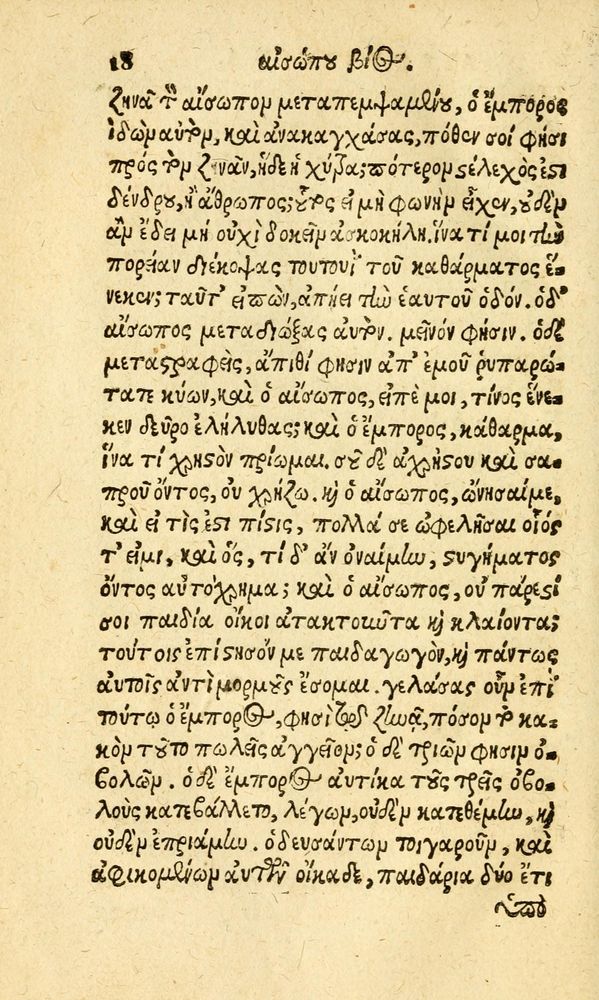 18 αἰσώπου βίος.
ζηνᾶ τὸν αἴσωπον μεταπεμψαμένου, ὁ ἔμπορος
ἰδὼν αὐτὸν, καὶ ἀνακαγχάσας, πόθεν σοί φησι
πρὸς τὸν ζηνᾶν, ἥδε ἡ χύτρα; πότερον στέλεχός ἐστι
δένδρου, ἢ ἄθρωπος; οὗτος εἰ μὴ φωνὴν εἶχεν, οὐδὲν
ἂν ἔδει μὴ οὐχὶ δοκεῖν ἀσκοκήλη. ἵνα τί μοι τὴν
πορείαν διέκοψας τουτουῒ τοῦ καθάρματος ἕ-
νεκεν; ταῦτ' εἰπὼν, ἀπῄει τὴν ἑαυτοῦ ὁδόν. ὁ δ'
αἴσωπος μεταδιώξας αὐτὸν. μεῖνόν φησιν. ὁ δὲ
μεταστραφεὶς, ἄπιθί φησιν ἀπ' ἐμοῦ ῥυπαρώ-
τατε κύων, καὶ ὁ αἴσωπος, εἰπέ μοι, τίνος ἕνε-
κεν δεῦρο ἐλήλυθας; καὶ ὁ ἔμπορος, κάθαρμα,
ἵνα τί χρηστὸν πρίωμαι. σοῦ δὲ ἀχρήστου καὶ σα-
προῦ ὄντος, οὐ χρῄζω. καὶ ὁ αἴσωπος, ὤνησαί με,
καὶ εἴ τίς ἐστι πίστις, πολλά σε ὠφελῆσαι οἷός
τ' εἰμι, καὶ ὃς, τί δ' ἂν ὀναίμην, στυγήματος
ὄντος αὐτόχρημα; καὶ ὁ αἴσωπος, οὐ πάρεστί
σοι παιδία οἴκοι ἀτακτοῦντα καὶ κλαίοντα;
τούτοις ἐπίστησόν με παιδαγωγὸν, καὶ πάντως
αὐτοῖς ἀντὶ μορμοῦς ἔσομαι. γελάσας οὖν ἐπὶ
τούτῳ ὁ ἔμπορος, φησὶ τῷ ζηνᾷ, πόσου τὸ κα-
κὸν τοῦτο πωλεῖς ἀγγεῖον; ὁ δὲ τριῶν φησιν ὀ-
βολῶν. ὁ δὲ ἔμπορος αὐτίκα τοὺς τρεῖς ὀβο-
λοὺς κατεβάλλετο, λέγων, οὐδὲν κατεθέμην, καὶ
οὐδὲν ἐπριάμην. ὁδευσάντων τοιγαροῦν, καὶ
ἀφικομένων αὐτῶν οἴκαδε, παιδάρια δύο ἔτι
ὑπὸ